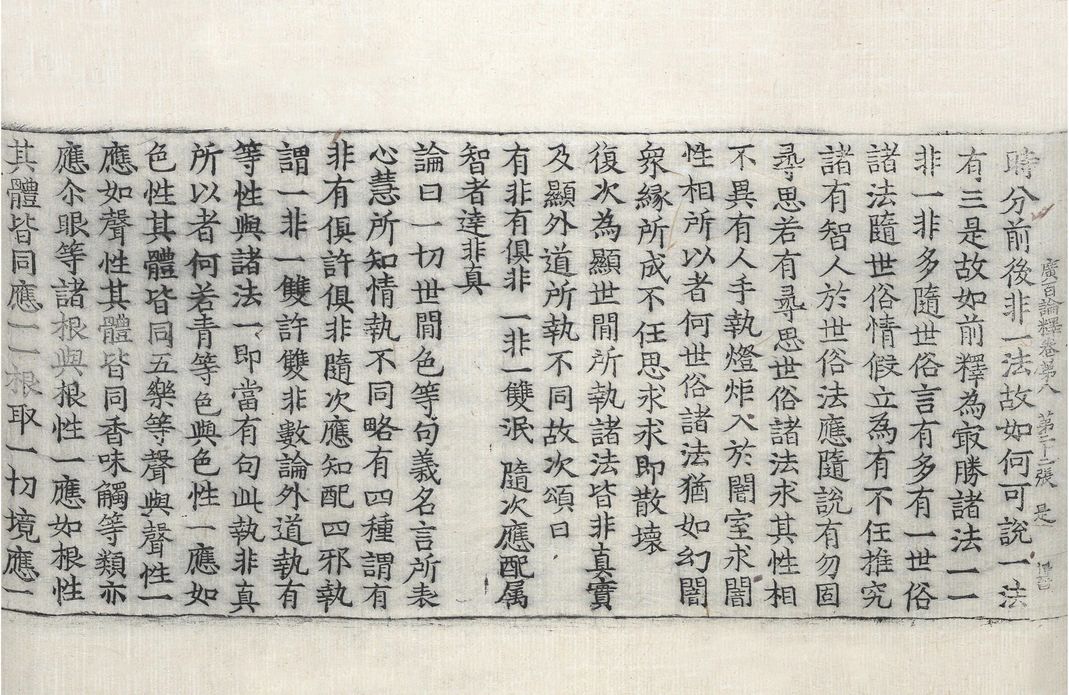 廣百論釋卷第八 張 是
時分前後非一法故如何可說一法
有三是故如前釋為㝡勝諸法一一
非一非多隨世俗言有多多有一世俗
諸法隨世俗情假立為有不任推究
諸有智人於世俗法應隨說有勿固
尋思若有尋思世俗諸法求其性相
不異有人手執燈炬入於闇室求闇
性相所以者何世俗諸法猶如幻闇
衆緣所成不任思求求即散壞
復次為顯世閒所執諸法皆非真實
及顯外道所執不同故次頌曰
有非有俱非 一非一雙泯 隨次應配属
智者達非真
論曰一切世閒色等句義名言所表
心慧所知情執不同略有四種謂有
非有俱許俱非隨次應知配四邪執
謂一非一雙許雙非數論外道執有
等性與諸法一即當有句此執非真
所以者何若青等色與色性一應如
色性其體皆同五樂等聲與聲性一
應如聲性其體皆同香味觸等類亦
應尒眼等諸根與根性一應如根性
其體皆同應一一根取一切境應一